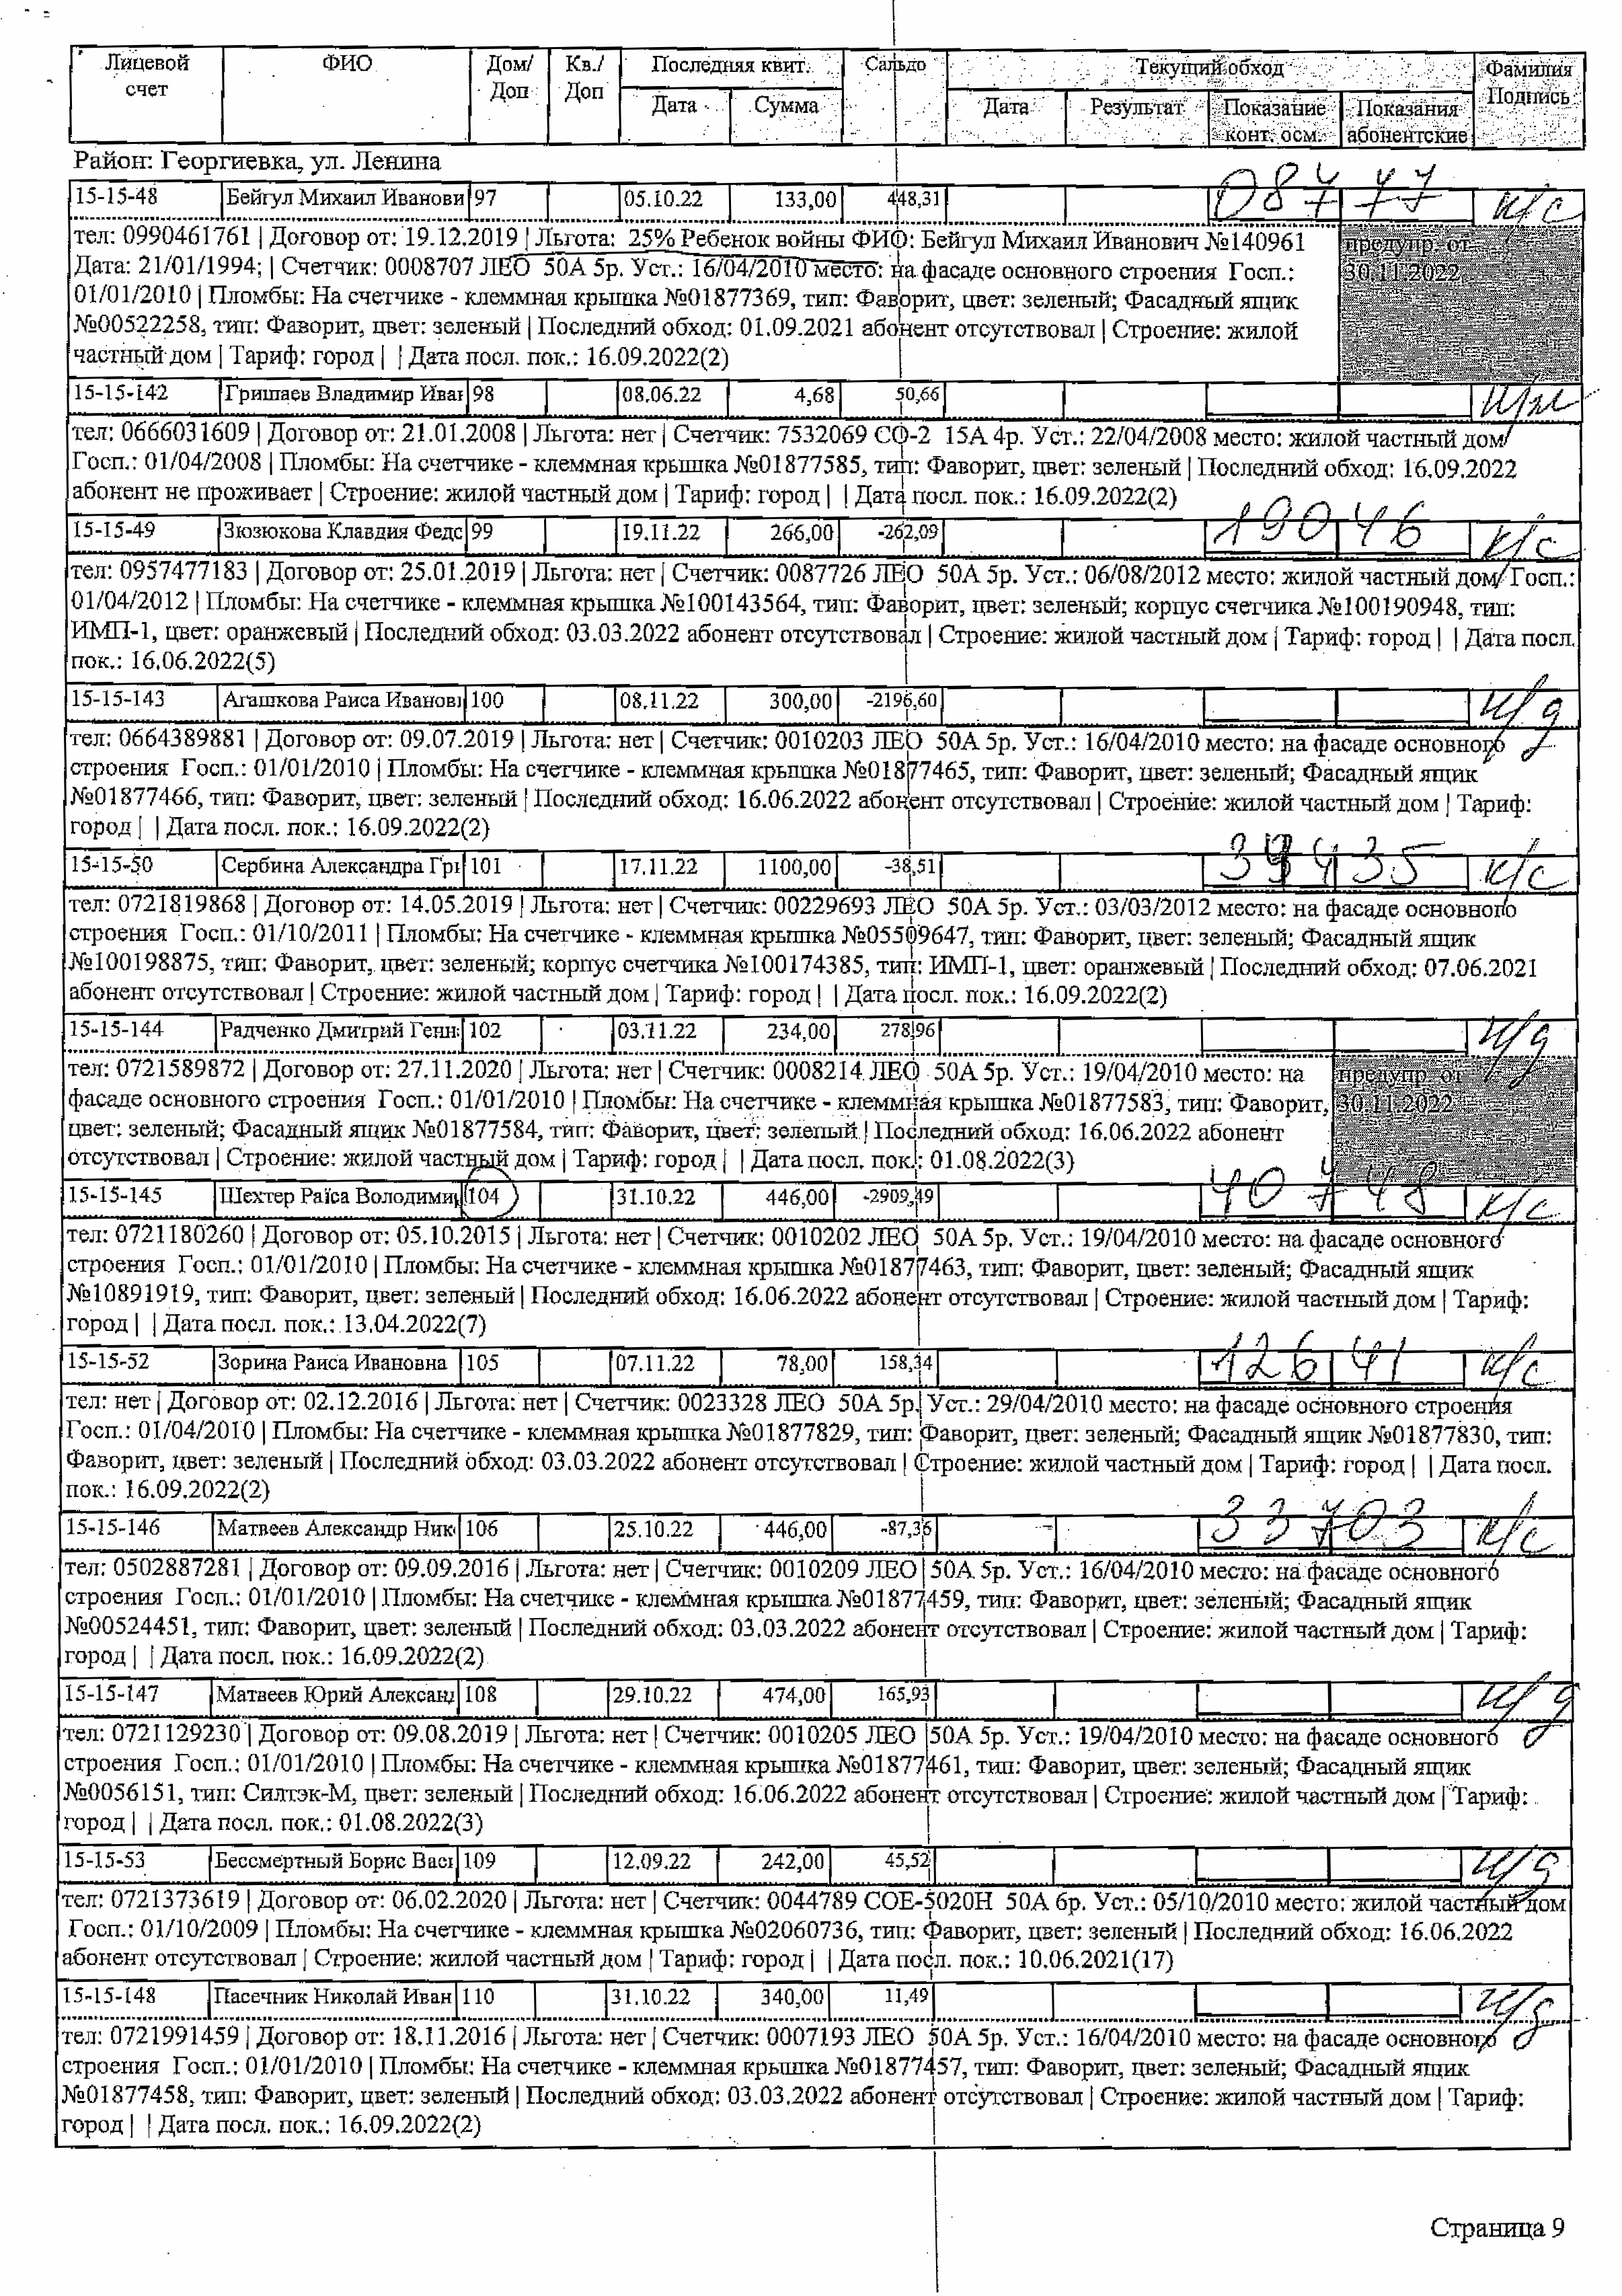 Лицевой счет ФИО Дом/Доп Кв./Доп Последняя квит. Сальдо Текущий обход Фамилия Подпись
Дата Сумма Дата Результат Показание конт. осм. Показания абонентские
Район: Георгиевка, ул. Ленина
15-15-48 Бейгул Михаил Иванови 97 05.10.22 133,00 448,31 08777 к/с
тел: 0990461761 | Договор от: 19.12.2019 | Льгота: 25% Ребенок войны ФИО: Бейгул Михаил Иванович №140961 предупр. от
Дата: 21/01/1994; | Счетчик: 0008707 ЛЕО 50А 5р. Уст.: 16/04/2010 место: на фасаде основного строения Госп.: 30.11.2022
01/01/2010 | Пломбы: На счетчике - клеммная крышка №01877369, тип: Фаворит, цвет: зеленый; Фасадный ящик
№00522258, тип: Фаворит, цвет: зеленый | Последний обход: 01.09.2021 абонент отсутствовал | Строение: жилой
частный дом | Тариф: город | | Дата посл. пок.: 16.09.2022(2)
15-15-142 Гришаев Владимир Иван 98 08.06.22 4,68 50,66
тел: 0666031609 | Договор от: 21.01.2008 | Льгота: нет | Счетчик: 7532069 СО-2 15А 4р. Уст.: 22/04/2008 место: жилой частный дом
Госп.: 01/04/2008 | Пломбы: На счетчике - клеммная крышка №01877585, тип: Фаворит, цвет: зеленый | Последний обход: 16.09.2022
абонент не проживает | Строение: жилой частный дом | Тариф: город | | Дата посл. пок.: 16.09.2022(2)
15-15-49 Зюзюкова Клавдия Федо 99 19.11.22 266,00 -262,09 19046 к/с
тел: 0957477183 | Договор от: 25.01.2019 | Льгота: нет | Счетчик: 0087726 ЛЕО 50А 5р. Уст.: 06/08/2012 место: жилой частный дом Госп.:
01/04/2012 | Пломбы: На счетчике - клеммная крышка №100143564, тип: Фаворит, цвет: зеленый; корпус счетчика №100190948, тип:
ИМП-1, цвет: оранжевый | Последний обход: 03.03.2022 абонент отсутствовал | Строение: жилой частный дом | Тариф: город | | Дата посл.
пок.: 16.06.2022(5)
15-15-143 Агашкова Раиса Иванови 100 08.11.22 300,00 -2196,60 н/д
тел: 0664389881 | Договор от: 09.07.2019 | Льгота: нет | Счетчик: 0010203 ЛЕО 50А 5р. Уст.: 16/04/2010 место: на фасаде основного
строения Госп.: 01/01/2010 | Пломбы: На счетчике - клеммная крышка №01877465, тип: Фаворит, цвет: зеленый; Фасадный ящик
№01877466, тип: Фаворит, цвет: зеленый | Последний обход: 16.06.2022 абонент отсутствовал | Строение: жилой частный дом | Тариф:
город | | Дата посл. пок.: 16.09.2022(2)
15-15-50 Сербина Александра Гри 101 17.11.22 1100,00 -38,51 к/с
тел: 0721819868 | Договор от: 14.05.2019 | Льгота: нет | Счетчик: 00229693 ЛЕО 50А 5р. Уст.: 03/03/2012 место: на фасаде основного
строения Госп.: 01/10/2011 | Пломбы: На счетчике - клеммная крышка №05509647, тип: Фаворит, цвет: зеленый; Фасадный ящик
№100198875, тип: Фаворит, цвет: зеленый; корпус счетчика №100174385, тип: ИМП-1, цвет: оранжевый | Последний обход: 07.06.2021
абонент отсутствовал | Строение: жилой частный дом | Тариф: город | | Дата посл. пок.: 16.09.2022(2)
15-15-144 Радченко Дмитрий Генн 102 03.11.22 234,00 278,96 н/д
тел: 0721589872 | Договор от: 27.11.2020 | Льгота: нет | Счетчик: 0008214 ЛЕО 50А 5р. Уст.: 19/04/2010 место: на предупр. от
фасаде основного строения Госп.: 01/01/2010 | Пломбы: На счетчике - клеммная крышка №01877583, тип: Фаворит, 30.11.2022
цвет: зеленый; Фасадный ящик №01877584, тип: Фаворит, цвет: зеленый | Последний обход: 16.06.2022 абонент
отсутствовал | Строение: жилой частный дом | Тариф: город | | Дата посл. пок.: 01.08.2022(3)
15-15-145 Шехтер Раїса Володими 104 31.10.22 446,00 -2909,49 40748 к/с
тел: 0721180260 | Договор от: 05.10.2015 | Льгота: нет | Счетчик: 0010202 ЛЕО 50А 5р. Уст.: 19/04/2010 место: на фасаде основного
строения Госп.: 01/01/2010 | Пломбы: На счетчике - клеммная крышка №01877463, тип: Фаворит, цвет: зеленый; Фасадный ящик
№10891919, тип: Фаворит, цвет: зеленый | Последний обход: 16.06.2022 абонент отсутствовал | Строение: жилой частный дом | Тариф:
город | | Дата посл. пок.: 13.04.2022(7)
15-15-52 Зорина Раиса Ивановна 105 07.11.22 78,00 158,34 12641 к/с
тел: нет | Договор от: 02.12.2016 | Льгота: нет | Счетчик: 0023328 ЛЕО 50А 5р. Уст.: 29/04/2010 место: на фасаде основного строения
Госп.: 01/04/2010 | Пломбы: На счетчике - клеммная крышка №01877829, тип: Фаворит, цвет: зеленый; Фасадный ящик №01877830, тип:
Фаворит, цвет: зеленый | Последний обход: 03.03.2022 абонент отсутствовал | Строение: жилой частный дом | Тариф: город | | Дата посл.
пок.: 16.09.2022(2)
15-15-146 Матвеев Александр Ник 106 25.10.22 446,00 -87,36 33703 к/с
тел: 0502887281 | Договор от: 09.09.2016 | Льгота: нет | Счетчик: 0010209 ЛЕО 50А 5р. Уст.: 16/04/2010 место: на фасаде основного
строения Госп.: 01/01/2010 | Пломбы: На счетчике - клеммная крышка №01877459, тип: Фаворит, цвет: зеленый; Фасадный ящик
№00524451, тип: Фаворит, цвет: зеленый | Последний обход: 03.03.2022 абонент отсутствовал | Строение: жилой частный дом | Тариф:
город | | Дата посл. пок.: 16.09.2022(2)
15-15-147 Матвеев Юрий Александ 108 29.10.22 474,00 165,93 н/д
тел: 0721129230 | Договор от: 09.08.2019 | Льгота: нет | Счетчик: 0010205 ЛЕО 50А 5р. Уст.: 19/04/2010 место: на фасаде основного
строения Госп.: 01/01/2010 | Пломбы: На счетчике - клеммная крышка №01877461, тип: Фаворит, цвет: зеленый; Фасадный ящик
№0056151, тип: Силтэк-М, цвет: зеленый | Последний обход: 16.06.2022 абонент отсутствовал | Строение: жилой частный дом | Тариф:
город | | Дата посл. пок.: 01.08.2022(3)
15-15-53 Бессмертный Борис Васи 109 12.09.22 242,00 45,52 н/д
тел: 0721373619 | Договор от: 06.02.2020 | Льгота: нет | Счетчик: 0044789 СОЕ-5020Н 50А 6р. Уст.: 05/10/2010 место: жилой частный дом
Госп.: 01/10/2009 | Пломбы: На счетчике - клеммная крышка №02060736, тип: Фаворит, цвет: зеленый | Последний обход: 16.06.2022
абонент отсутствовал | Строение: жилой частный дом | Тариф: город | | Дата посл. пок.: 10.06.2021(17)
15-15-148 Пасечник Николай Иван 110 31.10.22 340,00 11,49 н/д
тел: 0721991459 | Договор от: 18.11.2016 | Льгота: нет | Счетчик: 0007193 ЛЕО 50А 5р. Уст.: 16/04/2010 место: на фасаде основного
строения Госп.: 01/01/2010 | Пломбы: На счетчике - клеммная крышка №01877457, тип: Фаворит, цвет: зеленый; Фасадный ящик
№01877458, тип: Фаворит, цвет: зеленый | Последний обход: 03.03.2022 абонент отсутствовал | Строение: жилой частный дом | Тариф:
город | | Дата посл. пок.: 16.09.2022(2)
Страница 9